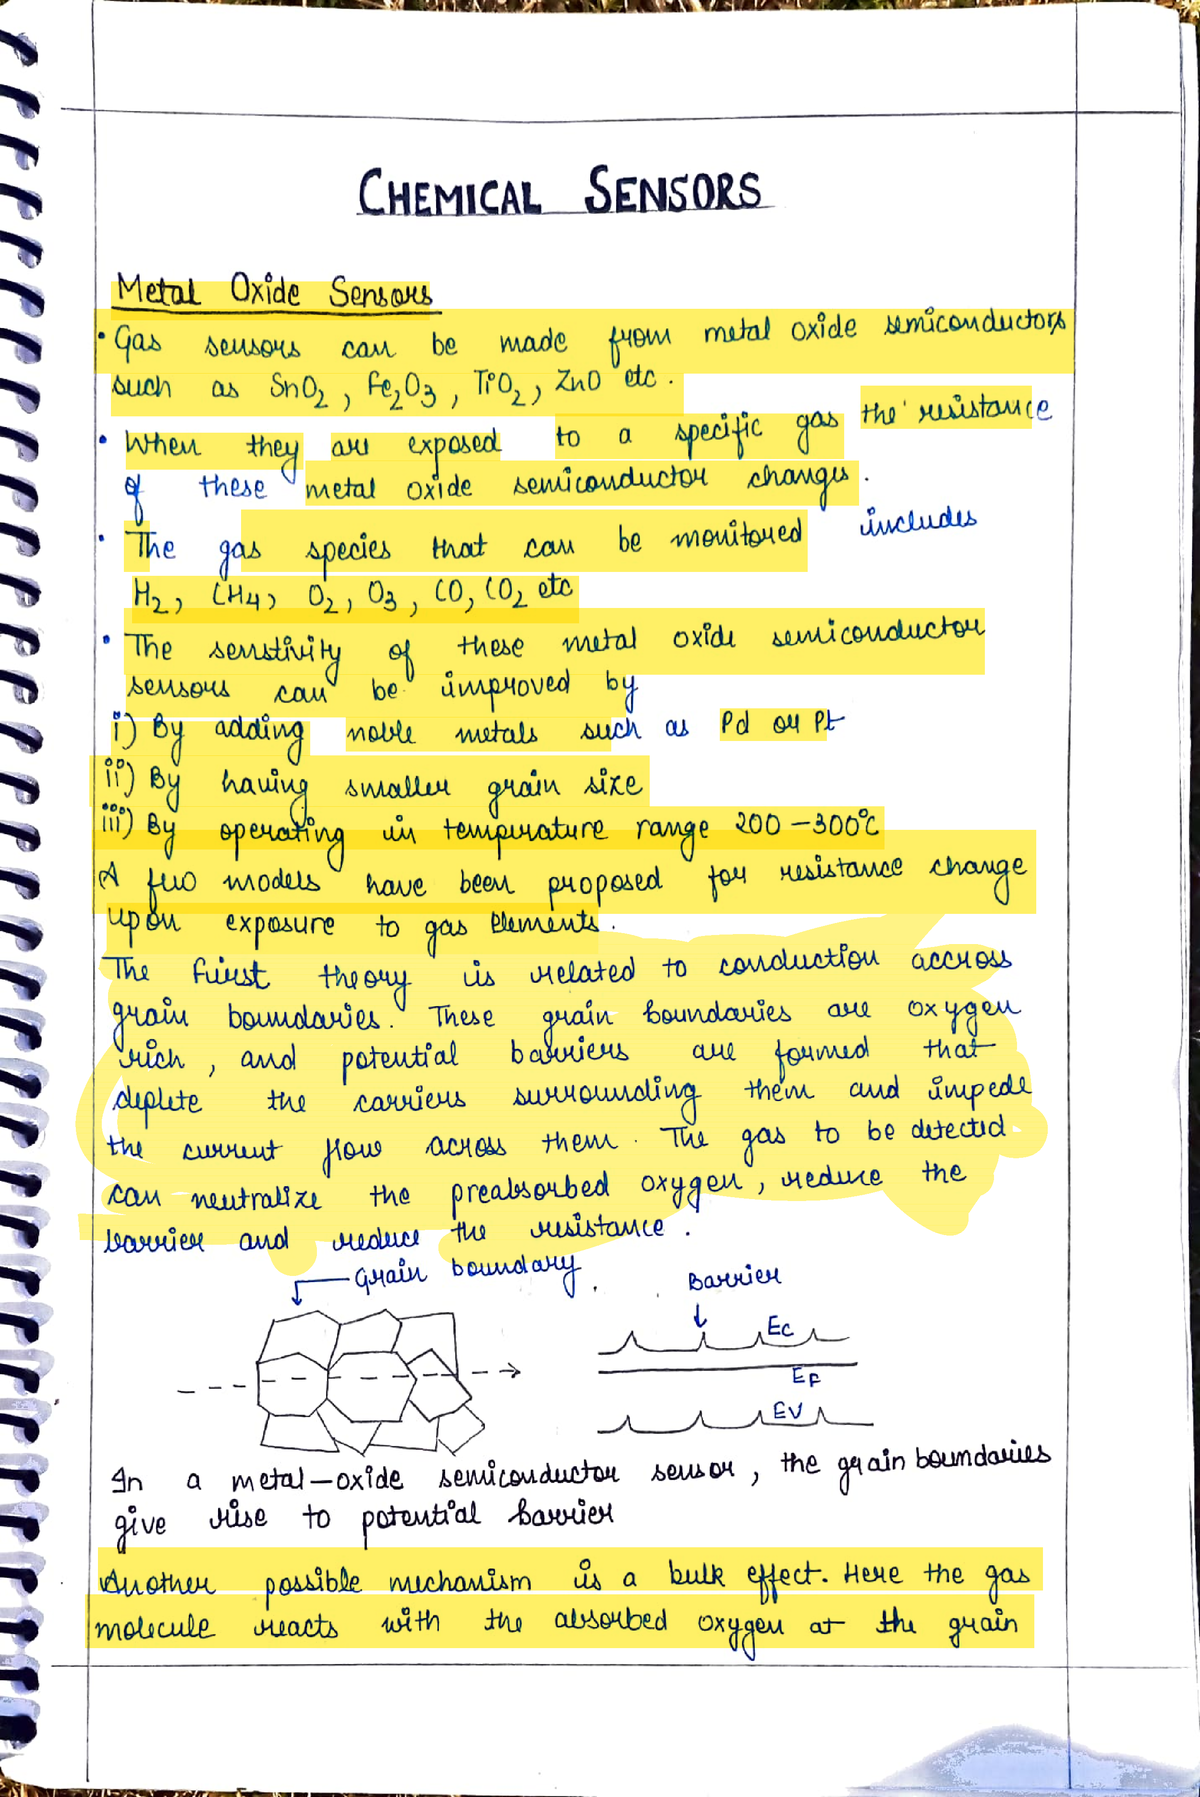 CHEMICAL SENSORS
Metal Oxide Sensors
• Gas sensors can be made from metal oxide semiconductors
such as SnO₂, Fe₂O₃, TiO₂, ZnO etc.
• When they are exposed to a specific gas the resistance
of these metal oxide semiconductor changes.
• The gas species that can be monitored includes
H₂, CH4, O₂, O₃, CO, CO₂ etc
• The senstivity of these metal oxide semiconductor
sensors can be improved by
i) By adding noble metals such as Pd or Pt
ii) By having smaller grain size
iii) By operating in temperature range 200-300°C
A few models have been proposed for resistance change
upon exposure to gas elements.
The first theory is related to conduction accross
grain boundaries. These grain boundaries are oxygen
rich, and potential barriers are formed that
deplete the carriers surrounding them and impede
the current flow across them. The gas to be detected
can neutralize the preabsorbed oxygen, reduce the
barrier and reduce the resistance.
Grain boundary.
Barrier
Ec
EF
EV
In a metal-oxide semiconductor sensor, the grain boundaries
give rise to potential barrier
Another possible mechanism is a bulk effect. Here the gas
molecule reacts with the absorbed oxygen at the grain